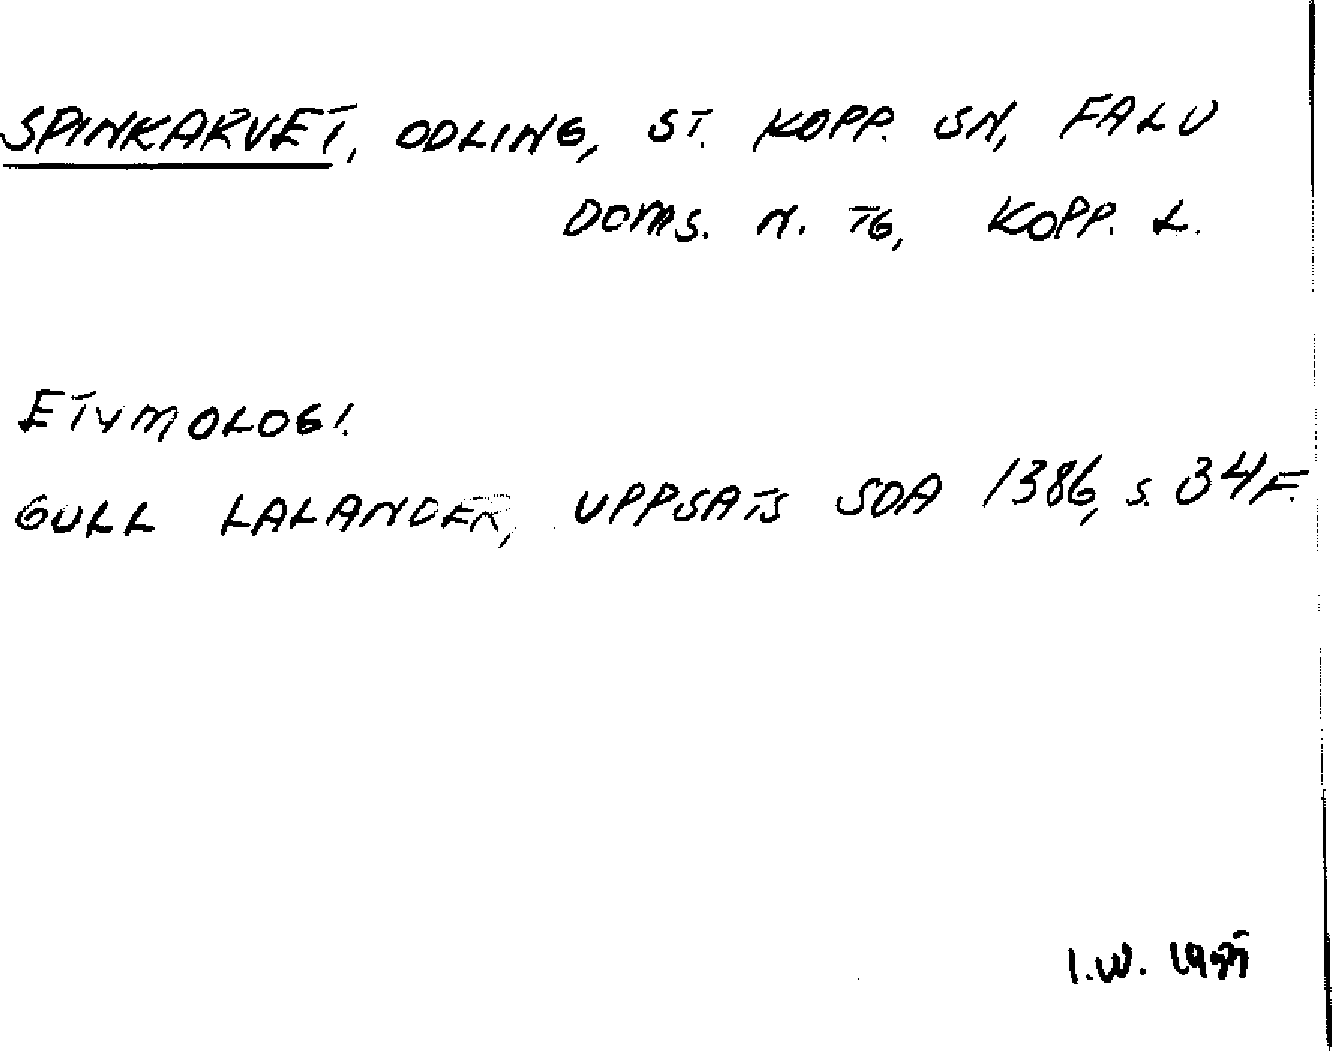 SPINKARVET, ODLING, ST. KOPP. SN, FALU
DOMS. N. TG, KOPP. L.
ETYMOLOGI.
GULL LALANDER, UPPSATS SOA 1386, S. 34 F.
I.W.